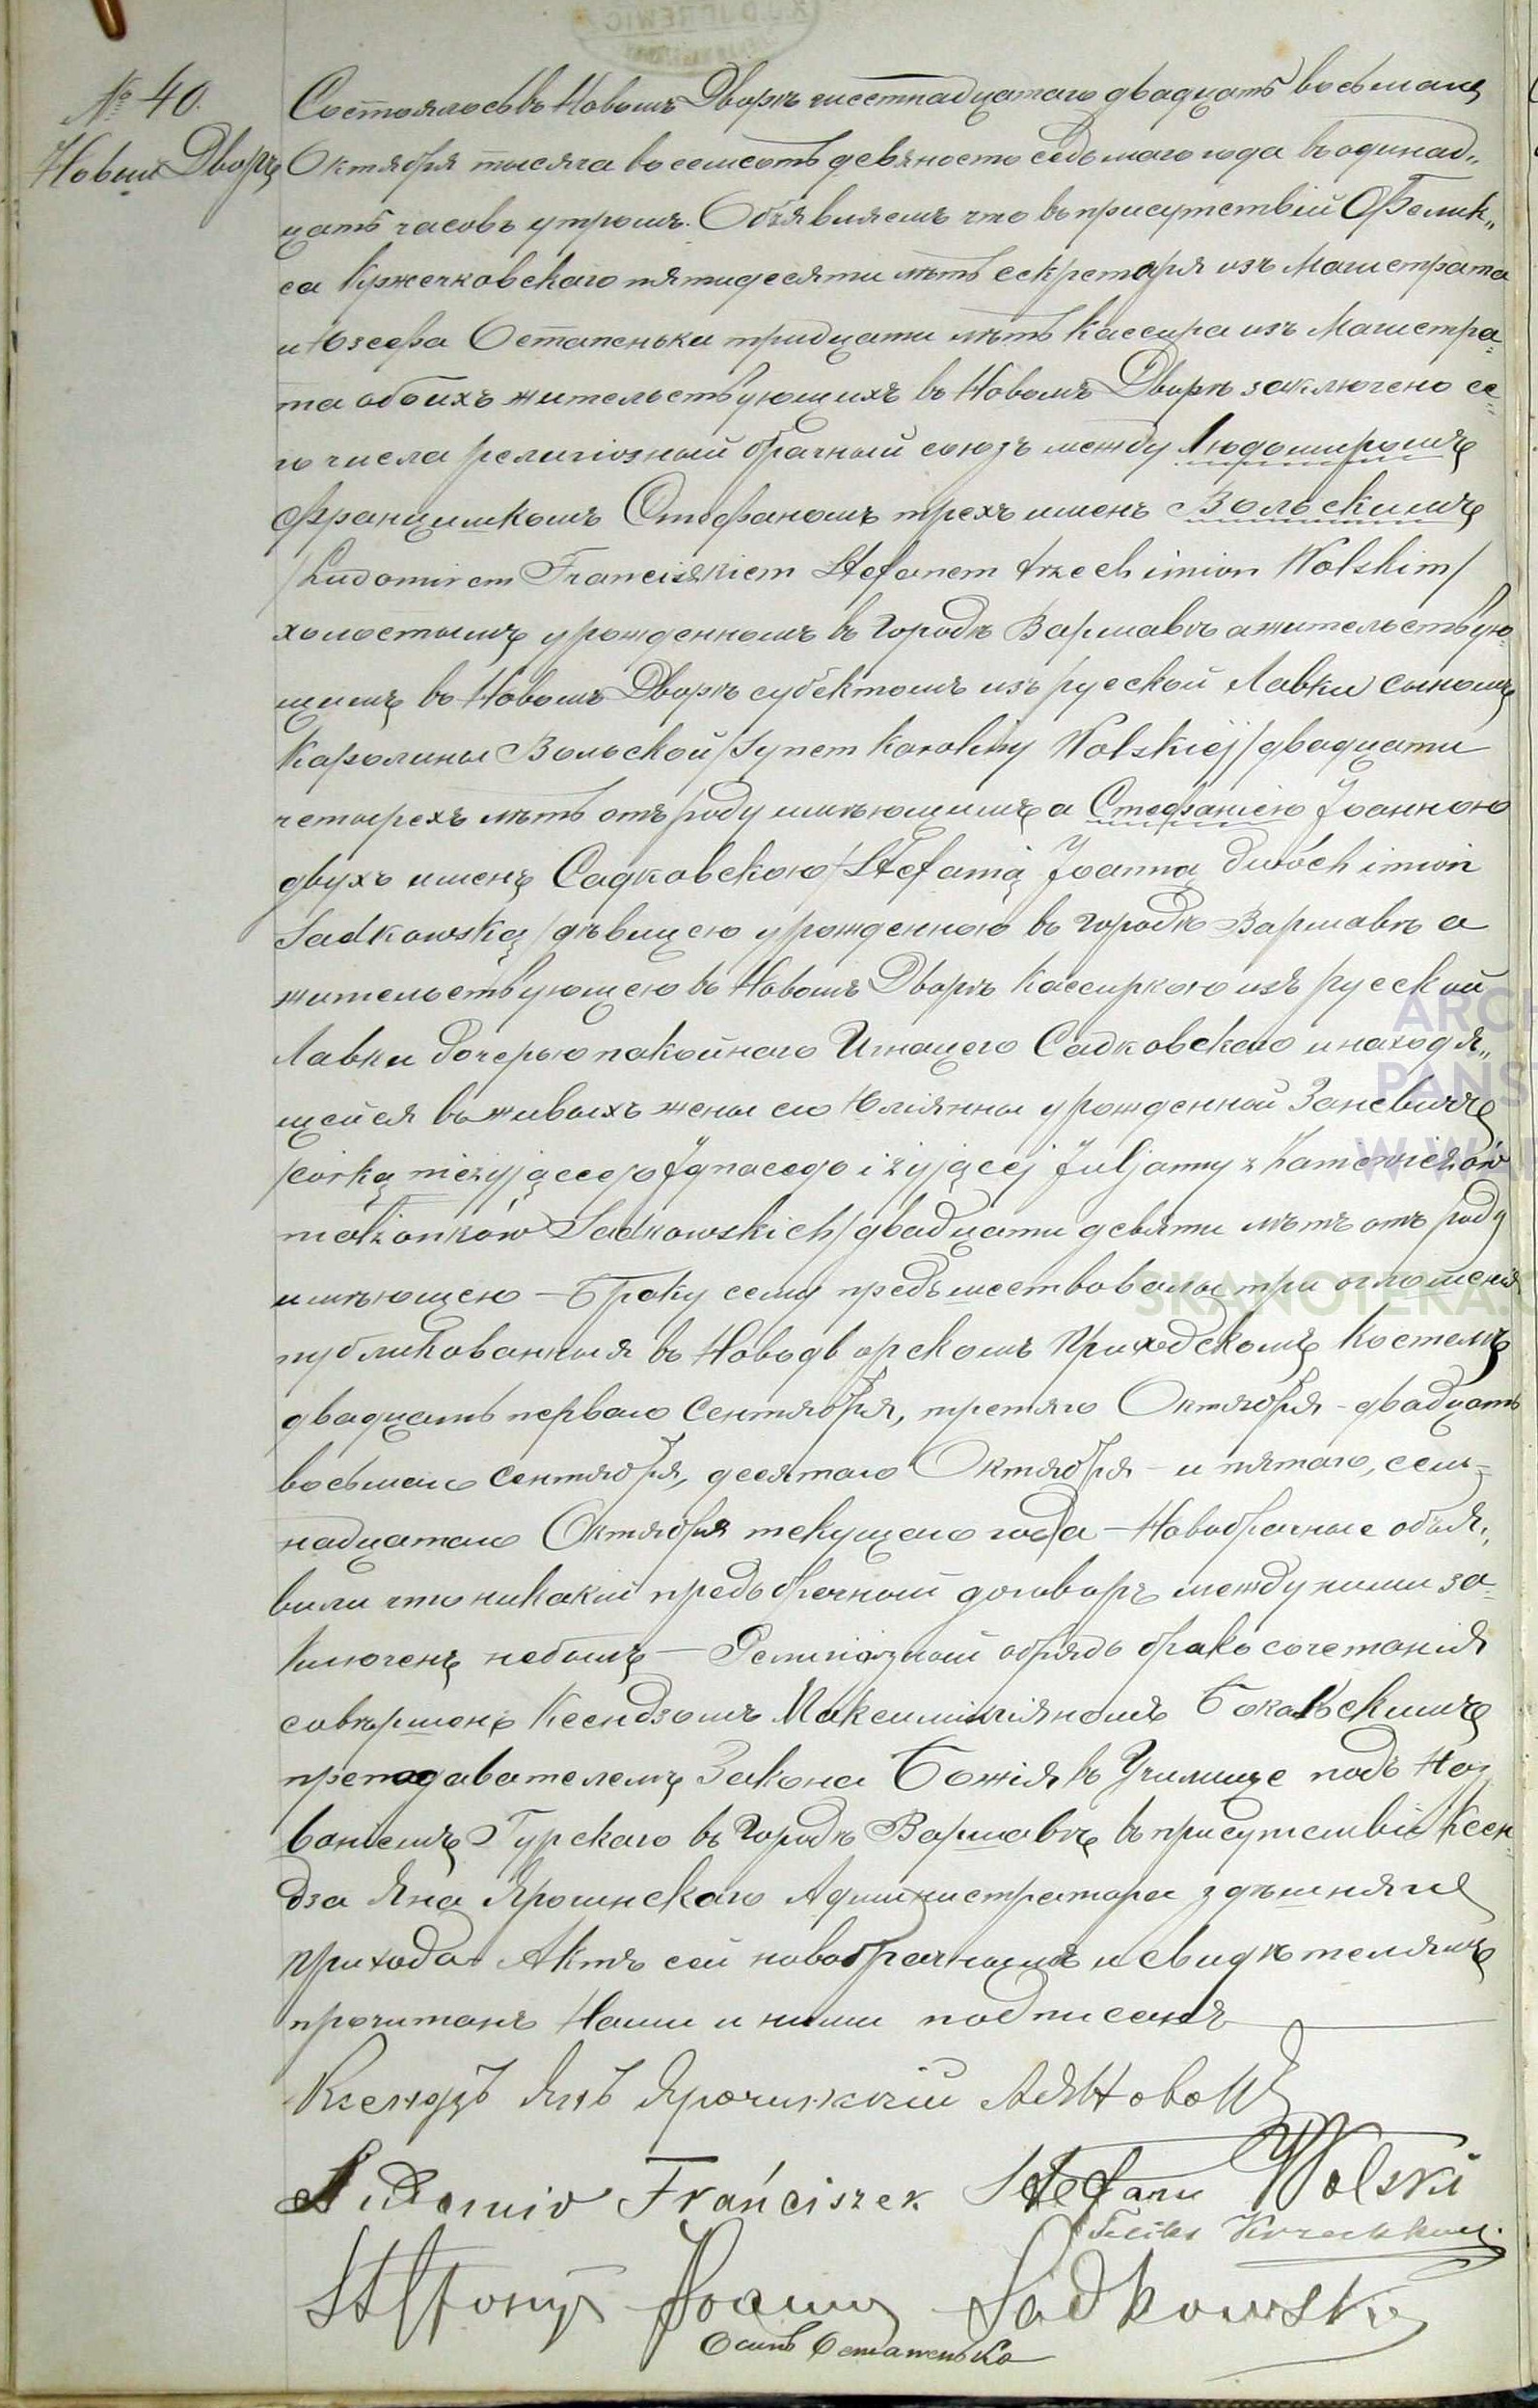 № 40.
Новый Дворъ
Состоялось въ Новомъ Дворѣ шестнадцатаго двадцать восьмаго
Октября тысяча восемсотъ девяносто седьмаго года въ одинад„
цать часовъ утромъ. Объявляемъ что въ присутствіи Фелик„
са Кржечковскаго пятидесяти лѣтъ секретаря изъ Магистрата
и Юзефа Остапенька тридцати лѣтъ кассира изъ Магистра=
та обоихъ жительствующихъ въ Новомъ Дворѣ заключено се=
го числа религіозный брачный союзъ между Людомиромъ
Францишкомъ Стефаномъ трехъ именъ Вольскимъ
/Ludomirem Franciszkiem Stefanem trzech imion Wolskim/
холостымъ урожденномъ въ Городѣ Варшавѣ а жительствую=
щимъ въ Новомъ Дворѣ субектомъ изъ русской Лавки сыномъ
Каролины Вольской /synem Karoliny Wolskiéj/ двадцати
четырехъ лѣтъ отъ роду имѣющимъ а Стефаніею Іоанною
двухъ именъ Садковскою /Stefanią Joanną dwóch imion
Sadkowską/ дѣвицею урожденною въ городѣ Варшавѣ а
жительствующею въ Новомъ Дворѣ кассиркою изъ русской
Лавки дочерью покойнаго Игнацего Садковскаго и находя„
щейся въ живыхъ жены его Юліянны урожденной Заневичъ
/córką nieżyjącego Ignacego i żyjącéj Juljanny z Zaniewiczów
małżonków Sadkowskich/ двадцати девяти лѣтъ отъ роду
имѣющею — Браку сему предъшествовалы три оглошенія
публикованныя въ Новодворскомъ Приходскомъ Костелѣ
двадцать перваго Сентября, третяго Октября - двадцать
восьмаго Сентября, десятаго Октября - и пятаго, сем=
надцатаго Октября текущаго года — Новобрачные объя„
вили что никакій предъбрачный договоръ между ними за=
ключенъ небылъ — Религіозный обрядъ бракосочетанія
совѣршенъ Ксендзомъ Максимиліяномъ
преподавателемъ Закона Божія въ Училище подъ Наз
ваніемъ Гурскаго въ Городѣ Варшавѣ въ присутствіи Ксен=
дза Яна Ярошинскаго Администратора здѣшняго
прихода Актъ сей новобрачнымъ и свидѣтелямъ
прочитанъ Нами и ними подписанъ
Ксендзъ Янъ
Ludomir Franciszek Stefan Wolski
Feliks
Joanna Sadkowska
Осипъ Остапенько
ARCH
PAŃST
SKANOTEKA.